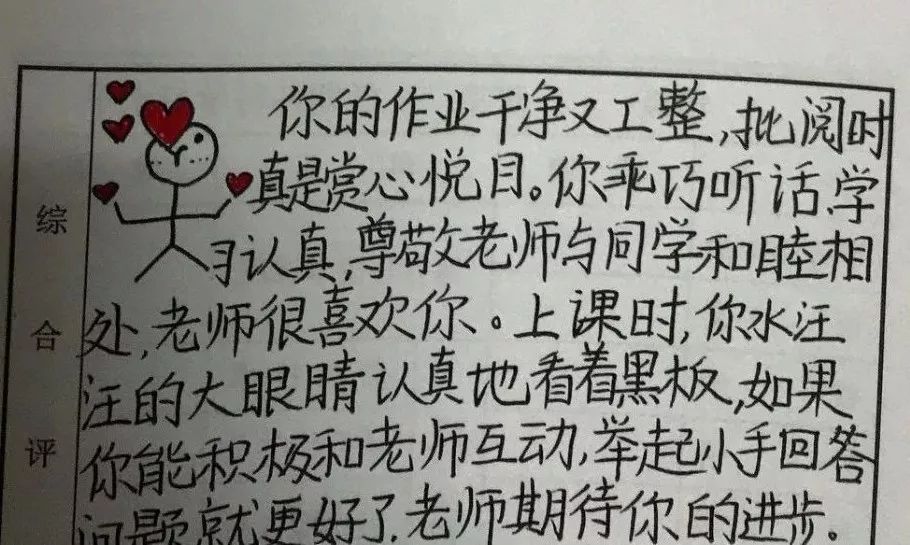 综合评
你的作业干净又工整,批阅时
真是赏心悦目。你乖巧听话,学
习认真,尊敬老师与同学和睦相
处,老师很喜欢你。上课时,你水汪
汪的大眼睛认真地看着黑板,如果
你能积极和老师互动,举起小手回答
问题就更好了.老师期待你的进步。